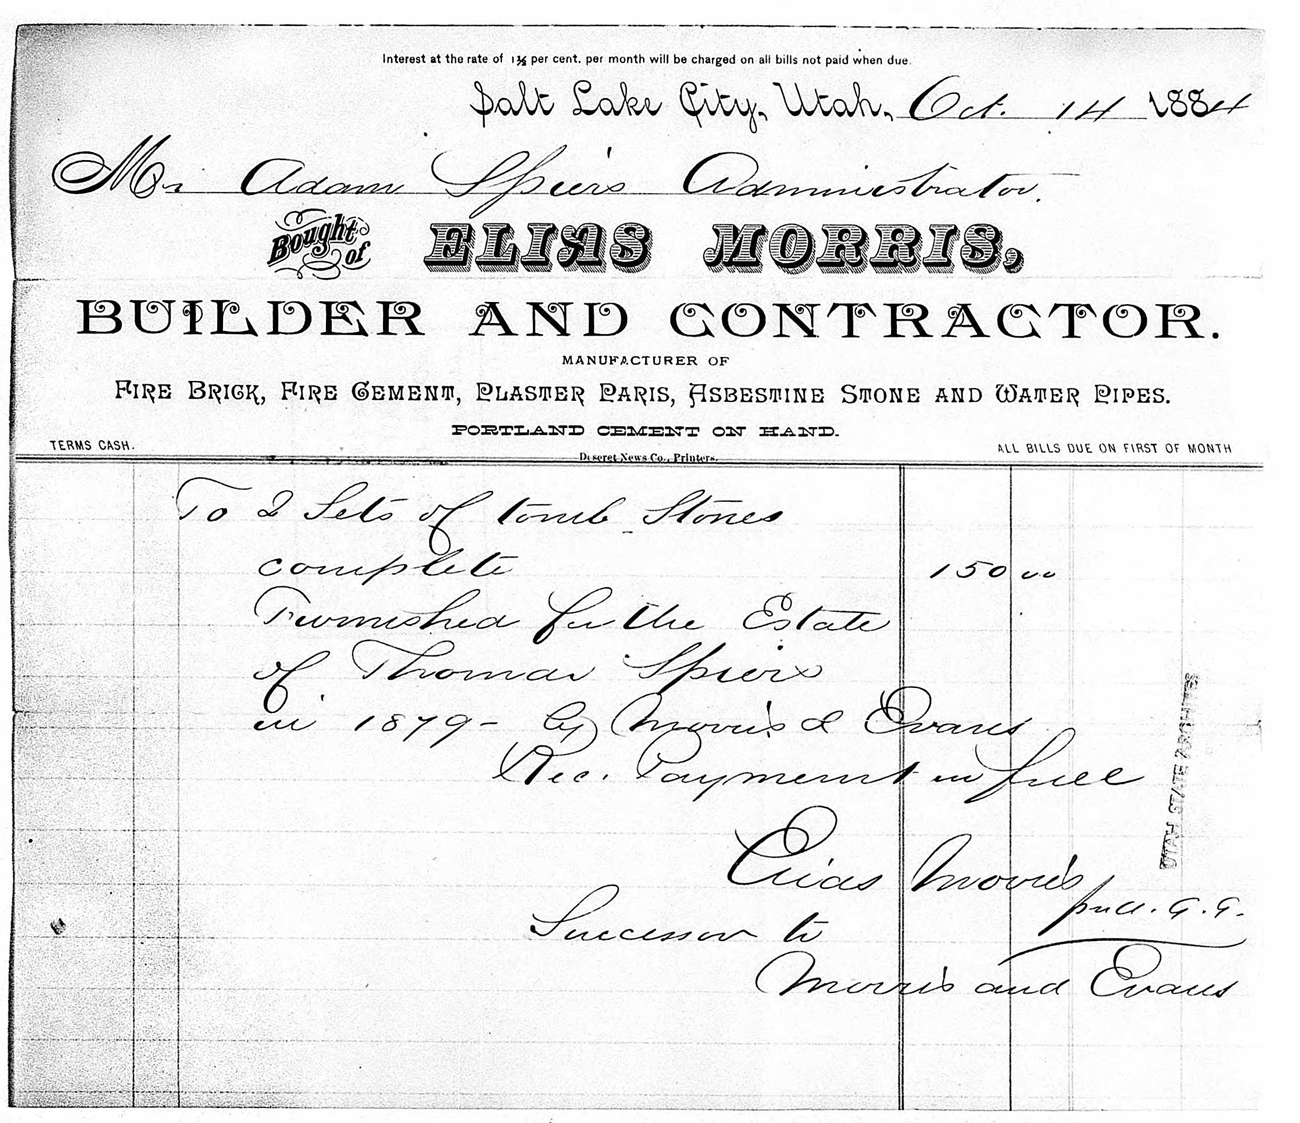 Interest at the rate of 1½ per cent. per month will be charged on all bills not paid when due.
Salt Lake City, Utah, Oct. 14 1884
Mr Adam Speirs Administrator.
Bought of ELIAS MORRIS,
BUILDER AND CONTRACTOR.
MANUFACTURER OF
FIRE BRICK, FIRE CEMENT, PLASTER PARIS, ASBESTINE STONE AND WATER PIPES.
PORTLAND CEMENT ON HAND.
TERMS CASH.
ALL BILLS DUE ON FIRST OF MONTH
Deseret News Co., Printers.
To 2 Sets of tomb Stones
complete 150 00
Furnished for the Estate
of Thomas Speirs
in 1879 - by Morris & Evans
Rec. Payment in full
Elias Morris
G. G.
Successor to
Morris and Evans
UTAH STATE ARCHIVES